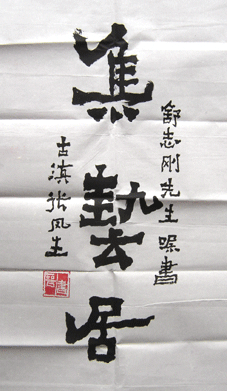 舒志刚先生嘱書
集藝居
古滇张风生